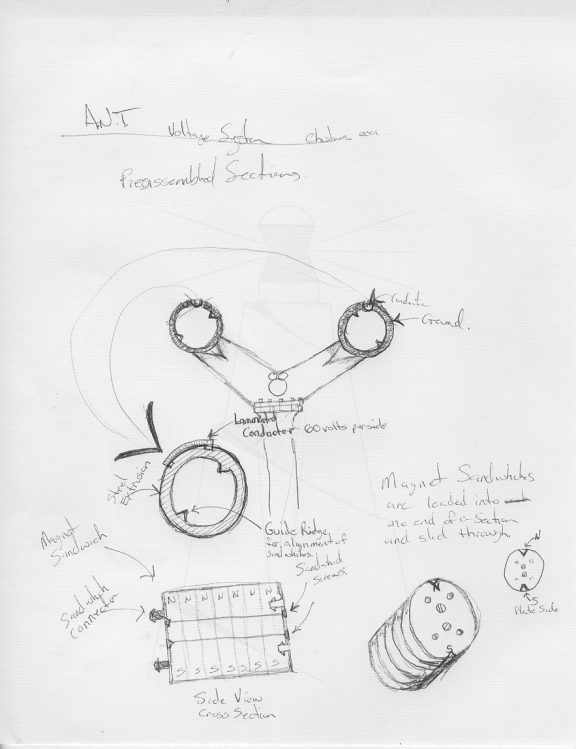 A.N.T
Voltage System
Preassembled Sections.
Ground.
Laminated
Conductor 60 volts per side
Steel
Extrusion
Magnet Sandwiches
are loaded into
one end of a Section
and slid through
Guide Ridge
for alignment of
Sandwiches
Magnet
Sandwich
Sandwich
Screws.
Sandwich
Connector
N
S
Plate Side
N N N N N N N
S S S S S S S
N
S
Side View
Cross Section